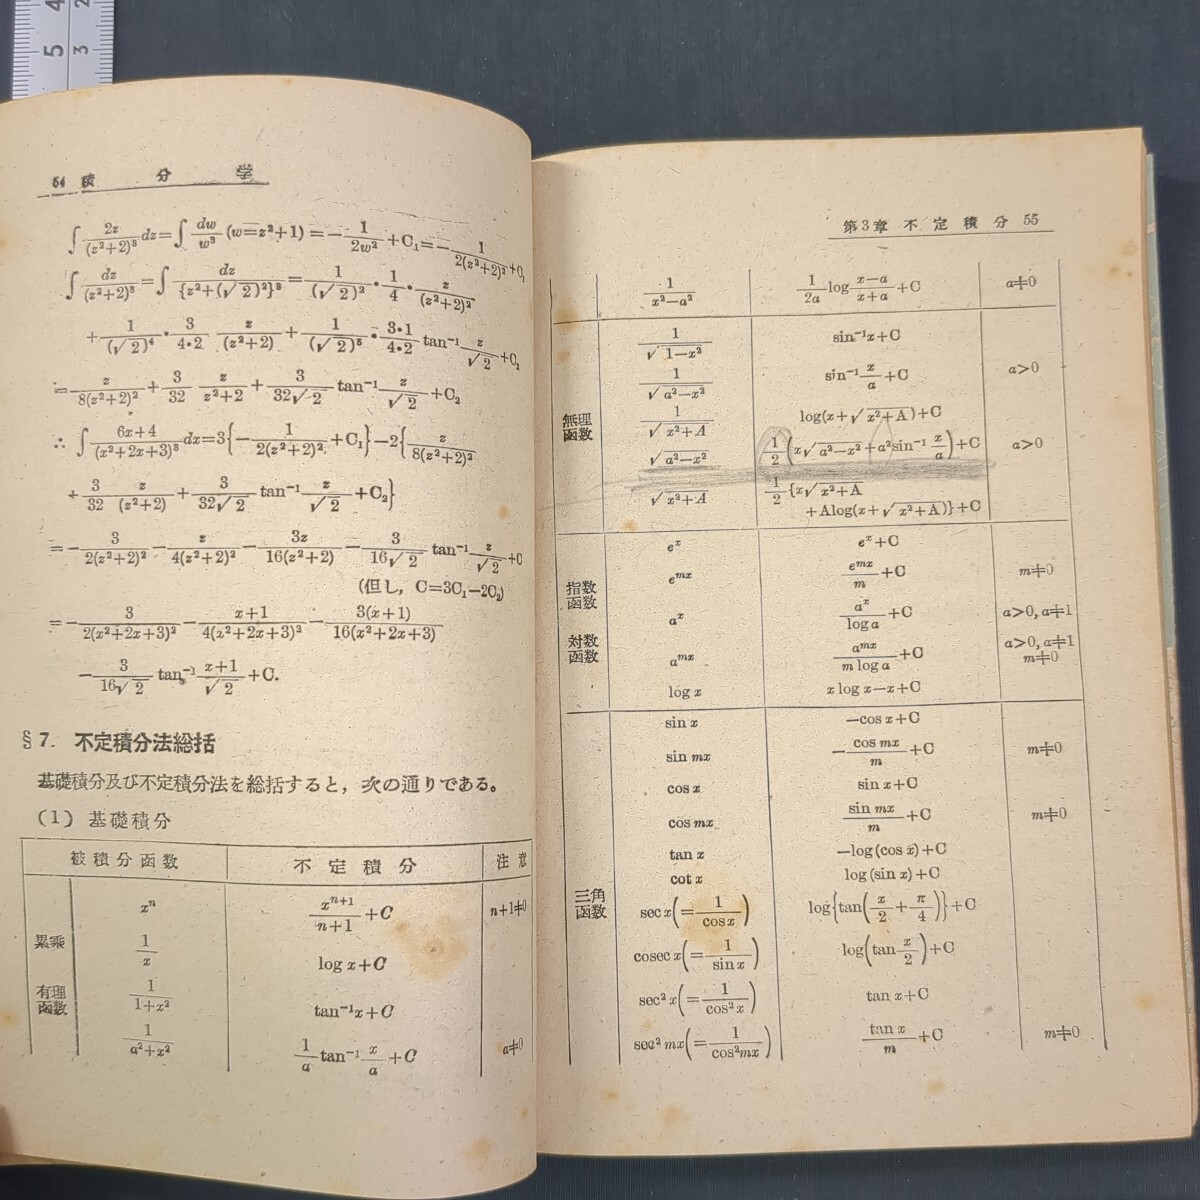 5 4
3 2
64 積 分 学
∫ 2z/(z²+2)³ dz=∫ dw/w³ (w=z²+1) = - 1/2w² +C₁= - 1/2(z²+2)² +C₁
∫ dz/(z²+2)³ =∫ dz/{z²+(√2)²}³ = 1/(√2)² · 1/4 · z/(z²+2)²
+ 1/(√2)⁴ · 3/4·2 z/(z²+2) + 1/(√2)⁵ · 3·1/4·2 tan⁻¹ z/√2 +C₂
= z/8(z²+2)² + 3/32 z/z²+2 + 3/32√2 tan⁻¹ z/√2 +C₂
∴ ∫ 6x+4/(x²+2x+3)³ dx=3{- 1/2(z²+2)² +C₁}-2{ z/8(z²+2)²
+ 3/32 z/(z²+2) + 3/32√2 tan⁻¹ z/√2 +C₂}
=- 3/2(z²+2)² - z/4(z²+2)² - 3z/16(z²+2) - 3/16√2 tan⁻¹ z/√2 +C
(但し, C=3C₁-2C₂)
=- 3/2(x²+2x+3)² - x+1/4(x²+2x+3)² - 3(x+1)/16(x²+2x+3)
- 3/16√2 tan⁻¹ x+1/√2 +C.
§7. 不定積分法総括
基礎積分及び不定積分法を総括すると, 次の通りである。
(1) 基礎積分
被積分函数 不定積分 注意
累乘
xⁿ xⁿ⁺¹/n+1 +C n+1≠0
1/x log x+C
有理函数
1/1+x² tan⁻¹x+C
1/a²+x² 1/a tan⁻¹ x/a +C a≠0
第3章 不定積分 55
1/x²-a² 1/2a log x-a/x+a +C a≠0
無理函数
1/√1-x² sin⁻¹x+C
1/√a²-x² sin⁻¹ x/a +C a>0
1/√x²+A log(x+√x²+A)+C
√a²-x² 1/2 (x√a²-x²+a²sin⁻¹ x/a)+C a>0
√x²+A 1/2 {x√x²+A
+Alog(x+√x²+A)}+C
指数函数
eˣ eˣ+C
eᵐˣ eᵐˣ/m +C m≠0
aˣ aˣ/log a +C a>0, a≠1
対数函数
aᵐˣ aᵐˣ/m log a +C a>0, a≠1 m≠0
log x x log x-x+C
三角函数
sin x -cos x+C
sin mx - cos mx/m +C m≠0
cos x sin x+C
cos mx sin mx/m +C m≠0
tan x -log(cos x)+C
cot x log(sin x)+C
sec x(= 1/cos x) log{tan(x/2 + π/4)}+C
cosec x(= 1/sin x) log(tan x/2)+C
sec² x(= 1/cos² x) tan x+C
sec² mx(= 1/cos² mx) tan x/m +C m≠0